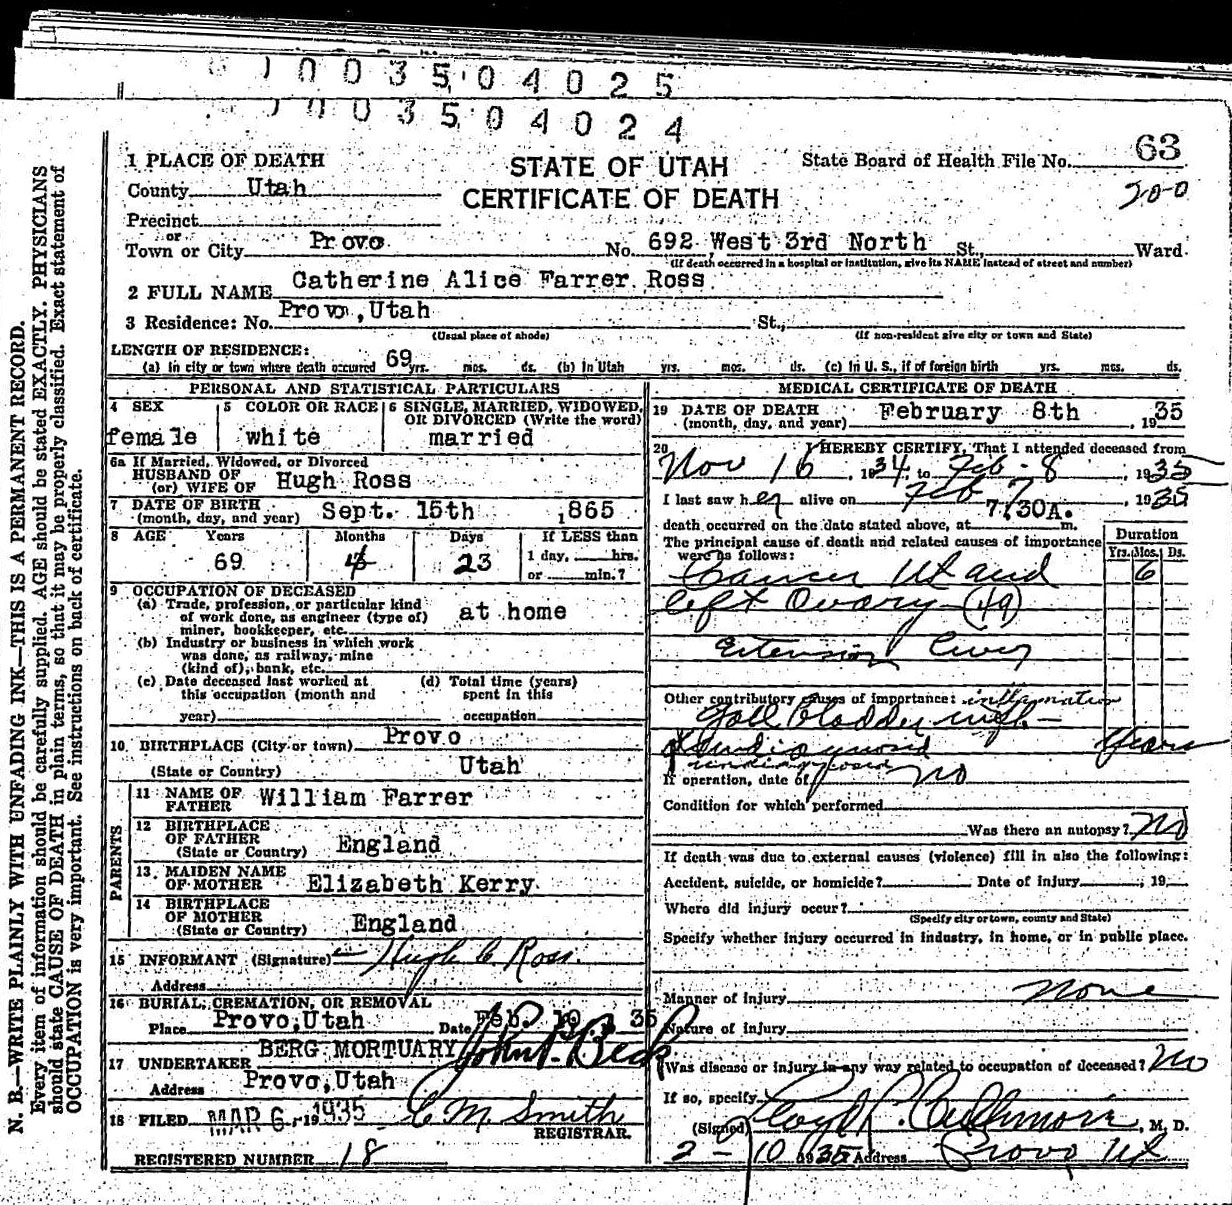 0 0 3 5 0 4 0 2 5
0 0 3 5 0 4 0 2 4
N. B.—WRITE PLAINLY WITH UNFADING INK—THIS IS A PERMANENT RECORD.
Every item of information should be carefully supplied. AGE should be stated EXACTLY. PHYSICIANS
should state CAUSE OF DEATH in plain terms, so that it may be properly classified. Exact statement of
OCCUPATION is very important. See instructions on back of certificate.
1 PLACE OF DEATH
County Utah
Precinct
or
Town or City Provo
STATE OF UTAH
CERTIFICATE OF DEATH
State Board of Health File No. 63
200
No. 692 West 3rd North St., Ward
(If death occurred in a hospital or institution, give its NAME instead of street and number)
2 FULL NAME Catherine Alice Farrer Ross
3 Residence: No. Provo, Utah St.,
(Usual place of abode) (If non-resident give city or town and State)
LENGTH OF RESIDENCE:
(a) In city or town where death occurred 69 yrs. mos. ds. (b) In Utah yrs. mos. ds. (c) In U. S., if of foreign birth yrs. mos. ds.
PERSONAL AND STATISTICAL PARTICULARS
4 SEX
female
5 COLOR OR RACE
white
6 SINGLE, MARRIED, WIDOWED,
OR DIVORCED (Write the word)
married
6a If Married, Widowed, or Divorced
HUSBAND OF
(or) WIFE OF Hugh Ross
7 DATE OF BIRTH
(month, day, and year) Sept. 15th 1865
8 AGE Years Months Days If LESS than
1 day, hrs.
or min.?
69 4 23
9 OCCUPATION OF DECEASED
(a) Trade, profession, or particular kind
of work done, as engineer (type of)
miner, bookkeeper, etc. at home
(b) Industry or business in which work
was done, as railway, mine
(kind of), bank, etc.
(c) Date deceased last worked at
this occupation (month and
year)
(d) Total time (years)
spent in this
occupation
10. BIRTHPLACE (City or town) Provo
(State or Country) Utah
PARENTS
11 NAME OF
FATHER William Farrer
12 BIRTHPLACE
OF FATHER
(State or Country) England
13. MAIDEN NAME
OF MOTHER Elizabeth Kerry
14 BIRTHPLACE
OF MOTHER
(State or Country) England
15 INFORMANT (Signature) Hugh C. Ross.
Address
16 BURIAL, CREMATION, OR REMOVAL
Place Provo, Utah Date Feb. 10 35
17 UNDERTAKER BERG MORTUARY John P. Beck
Address Provo, Utah
18 FILED MAR 6 1935 C M Smith
REGISTRAR.
REGISTERED NUMBER 18
MEDICAL CERTIFICATE OF DEATH
19 DATE OF DEATH
(month, day, and year) February 8th, 1935
20 I HEREBY CERTIFY, That I attended deceased from
Nov 16, 1934, to Feb - 8, 1935
I last saw her alive on Feb 7, 1935
death occurred on the date stated above, at 7:30A. m.
The principal cause of death and related causes of importance
were as follows:
Duration
Yrs. Mos. Ds.
Cancer Ut and 6
left Ovary (49)
Extension Liver
Other contributory causes of importance: inflamation
Gall bladder —
Years
If operation, date of no
Condition for which performed
Was there an autopsy? No
If death was due to external causes (violence) fill in also the following:
Accident, suicide, or homicide? Date of injury , 19
Where did injury occur?
(Specify city or town, county and State)
Specify whether injury occurred in industry, in home, or in public place.
Manner of injury none
Nature of injury
Was disease or injury in any way related to occupation of deceased? No
If so, specify
(Signed) Lloyd L. Cullimore, M. D.
2 - 10 1935 Address Provo Ut